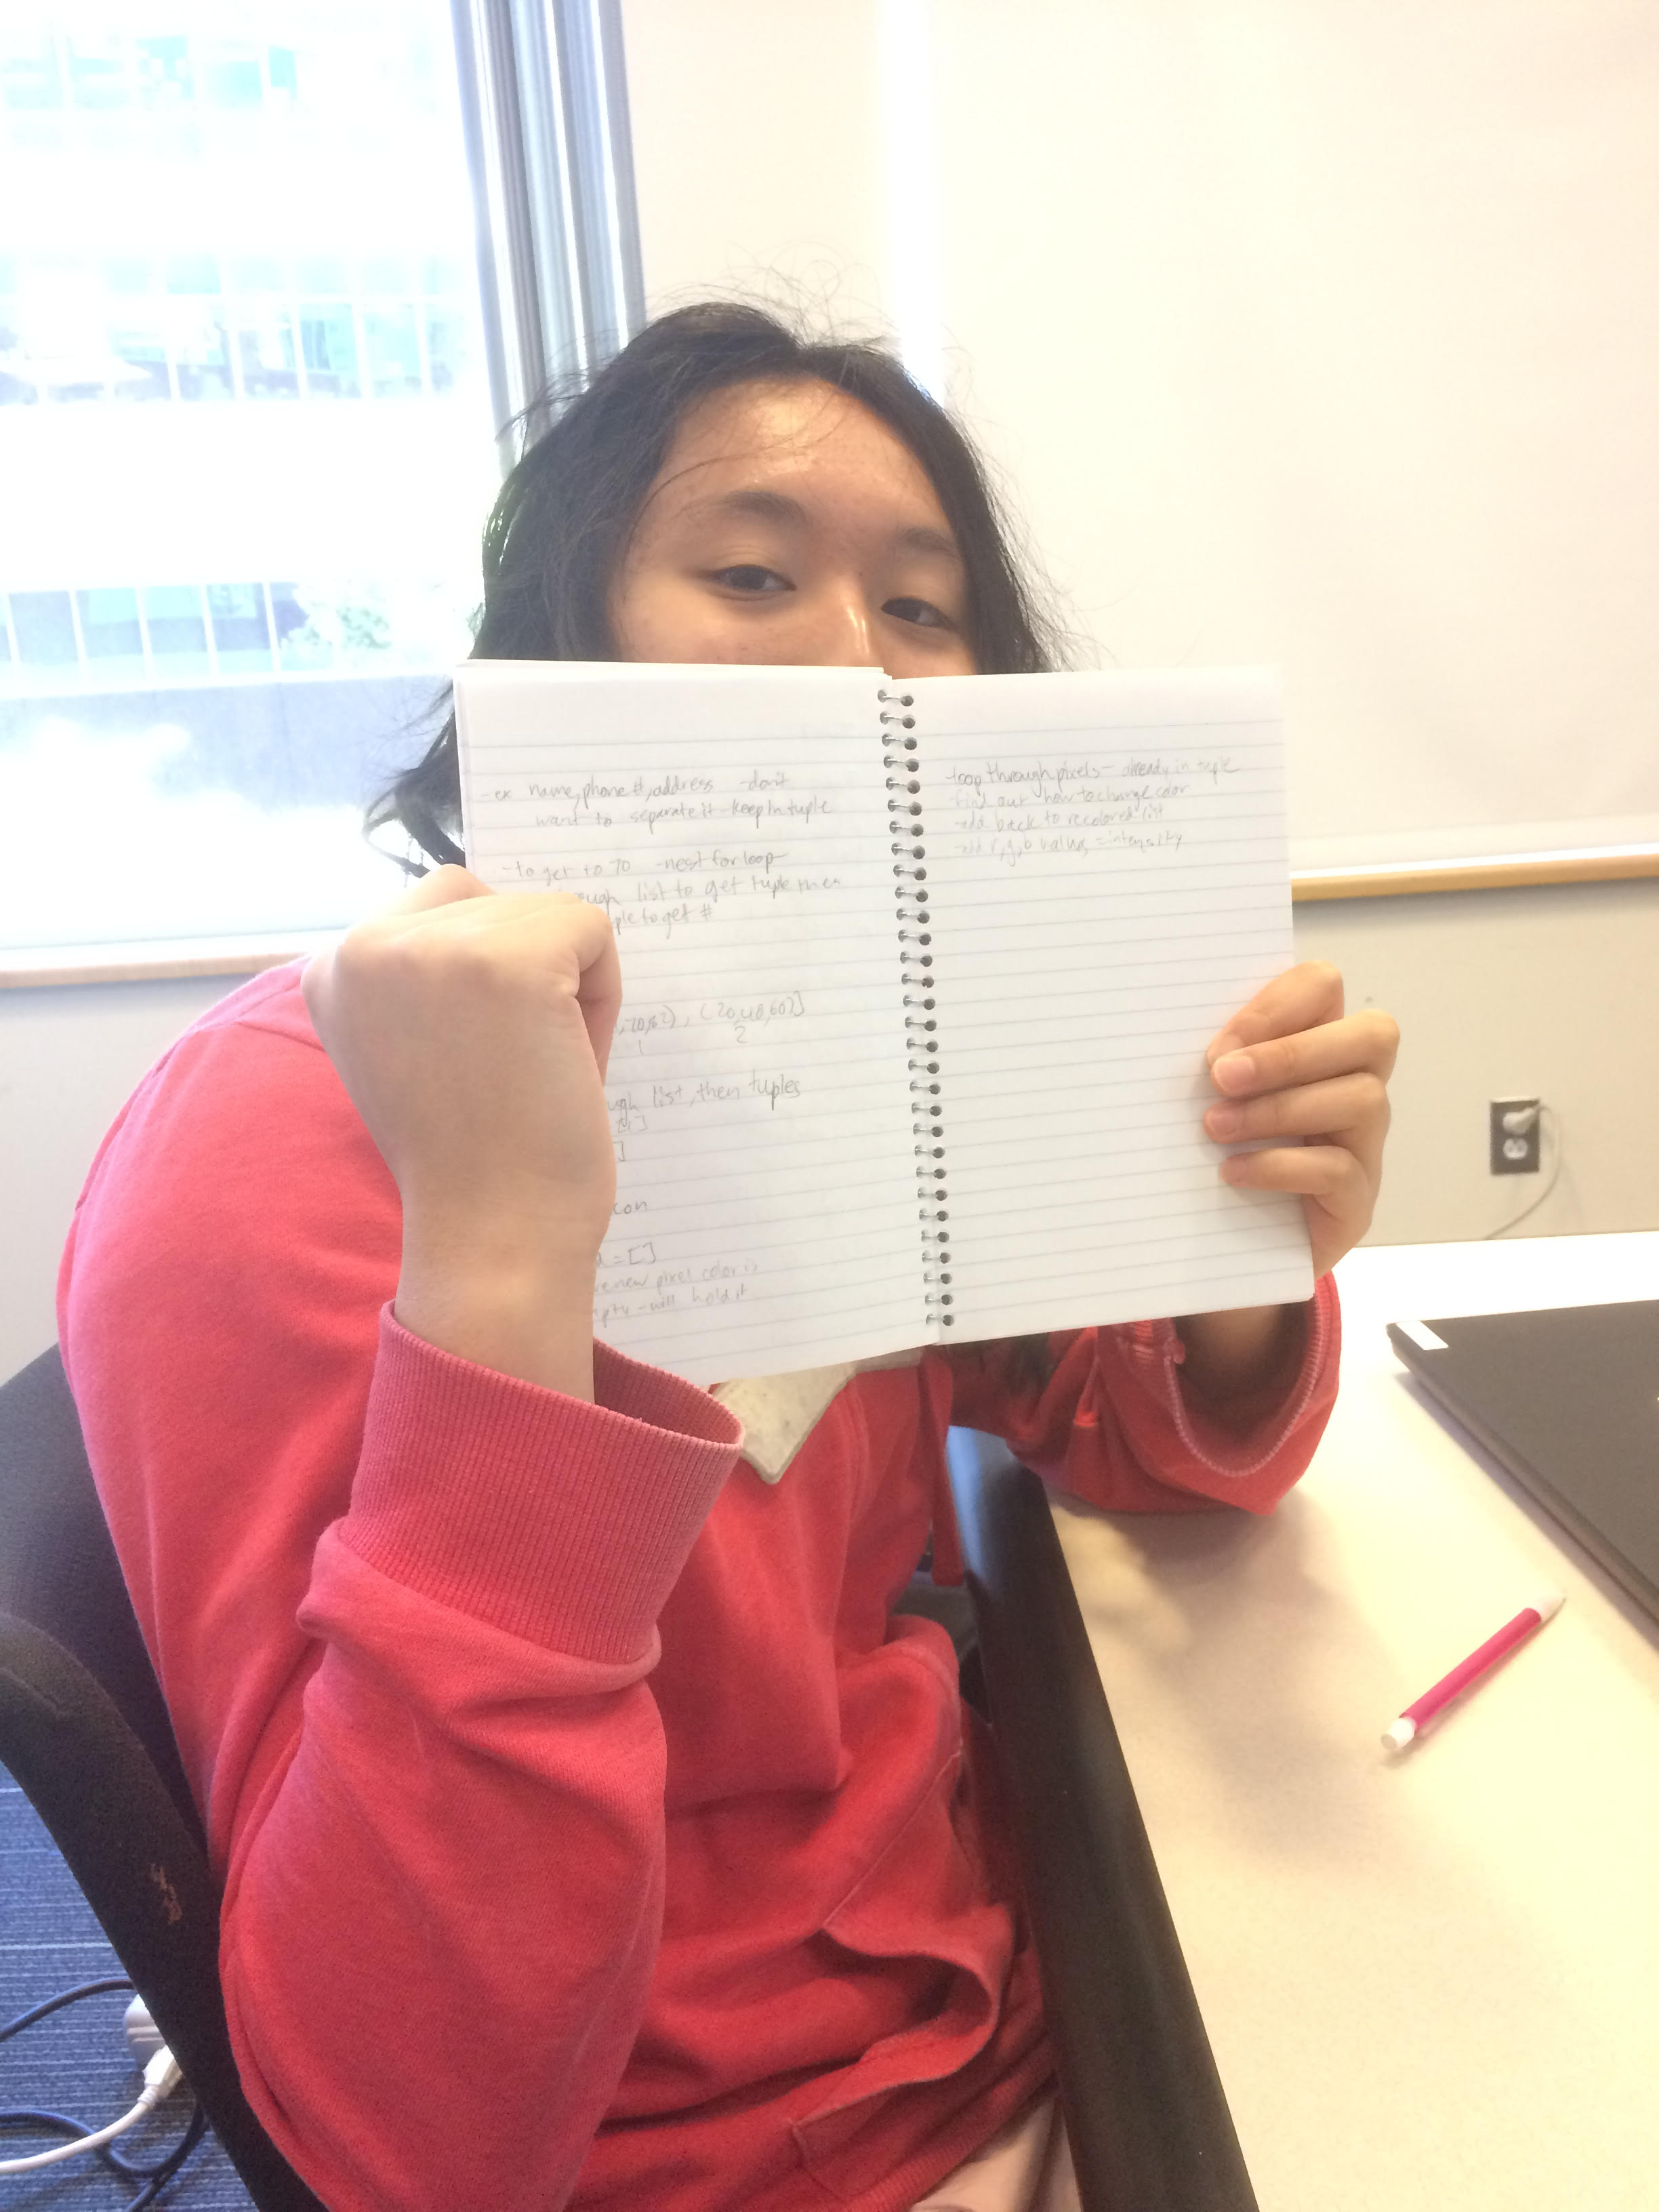 -ex name, phone #, address -don't
want to separate it -keep in tuple
-to get to 70 -nest for loop
list to get tuple then
to get #
,70,82), (20,40,60)]
1 2
list, then tuples
]
con
= []
new pixel color is
-will hold it
-loop through pixels - already in tuple
-find out how to change color
-add back to recolored list
-add r,g,b values = intensity